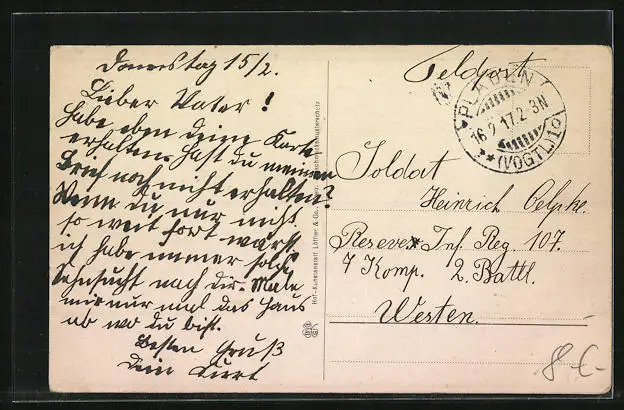 Donnerstag 15/2.
Lieber Vater!
Habe eben deine Karte
erhalten. Hast du meinen
Brief noch nicht erhalten?
Wenn du nur nicht
so weit fort wärst
ich habe immer solch
Sehnsucht nach dir. Male
mir nur mal das Haus
ab wo du bist.
Besten Gruß
Dein Kurt
Feldpost
PLAUEN
16.2.17.2-3N
*(VOGTL)1
Soldat
Heinrich Oelpke.
Reserve Inf. Reg 107.
7 Komp. 2. Battl.
Westen.
Hof-Kunstanstalt Löffler & Co.
8-€